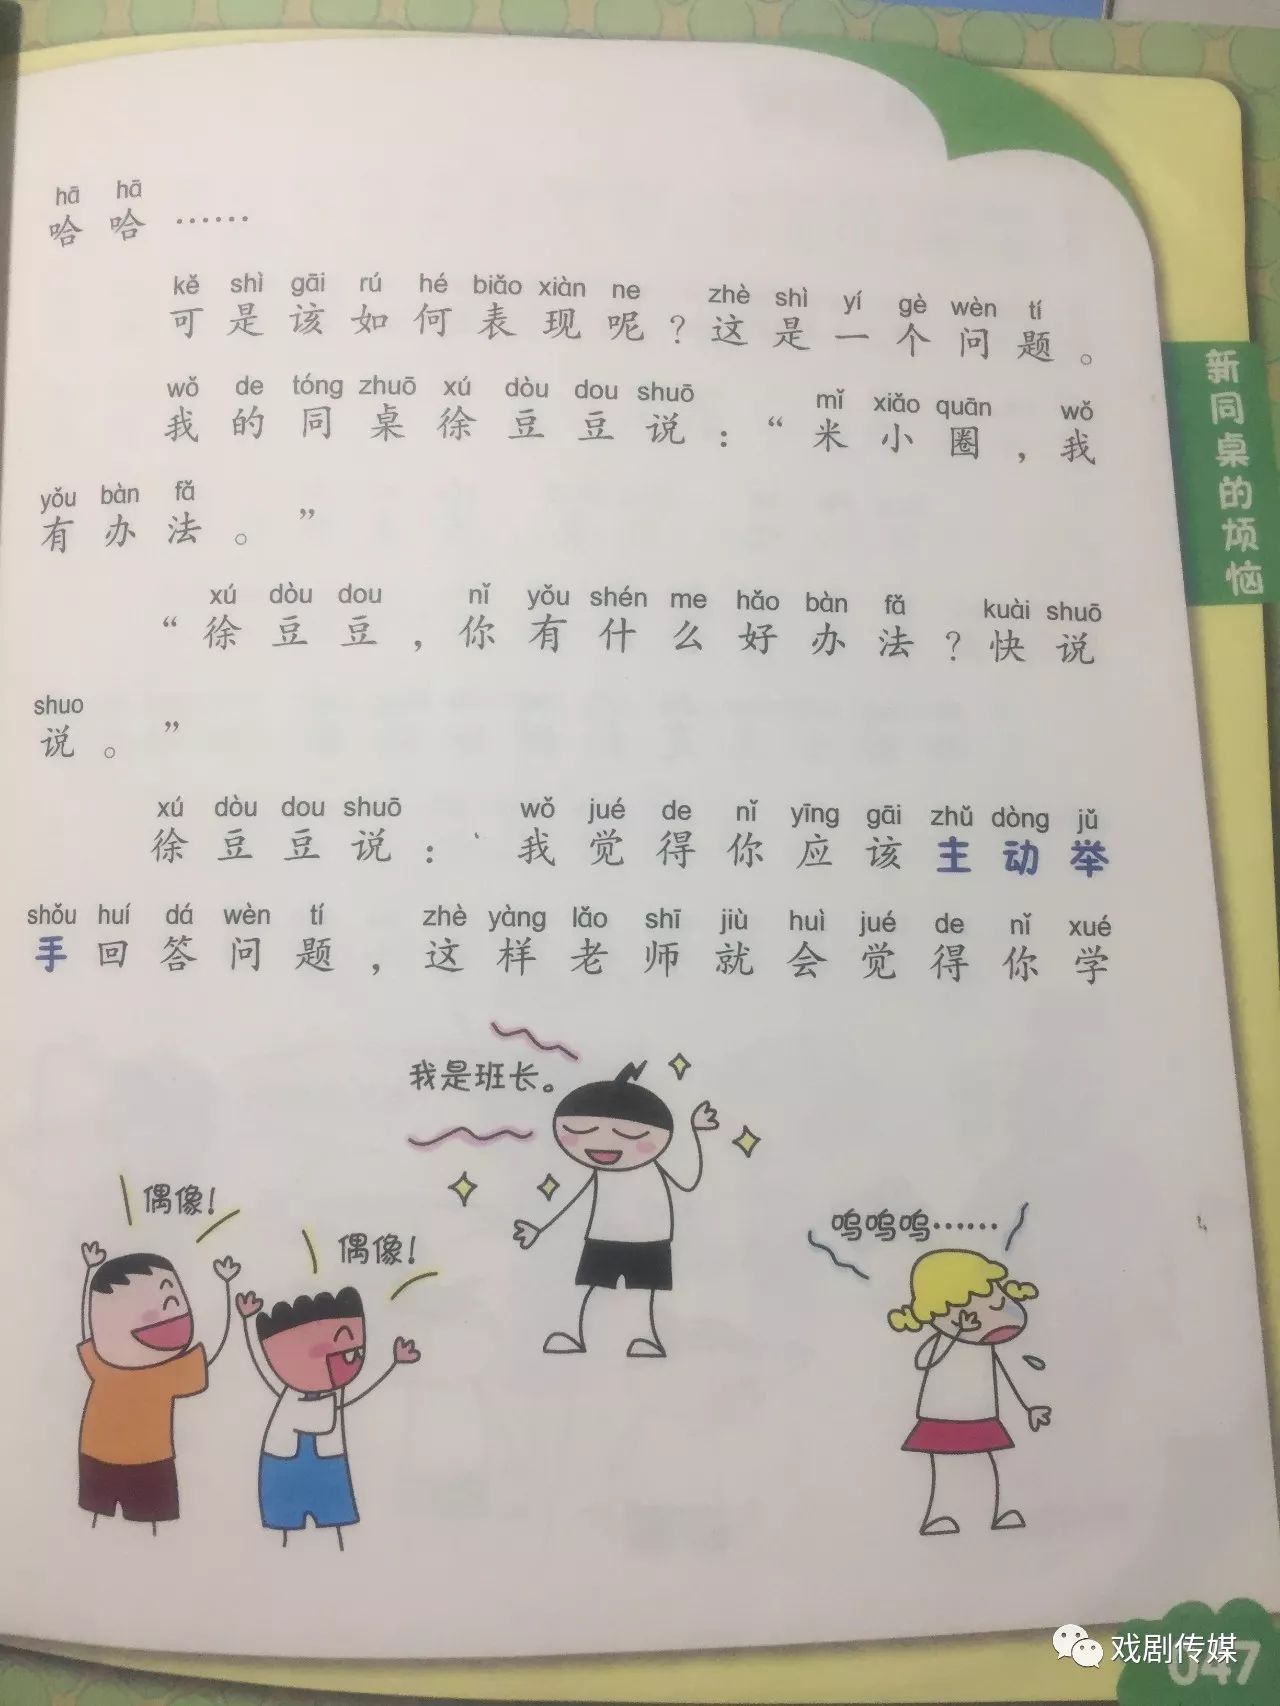 hā hā
哈哈……
kě shì gāi rú hé biǎo xiàn ne zhè shì yí gè wèn tí
可是该如何表现呢？这是一个问题。
wǒ de tóng zhuō xú dòu dou shuō mǐ xiǎo quān wǒ
我的同桌徐豆豆说：“米小圈，我
yǒu bàn fǎ
有办法。”
xú dòu dou nǐ yǒu shén me hǎo bàn fǎ kuài shuō
“徐豆豆，你有什么好办法？快说
shuo
说。”
xú dòu dou shuō wǒ jué de nǐ yīng gāi zhǔ dòng jǔ
徐豆豆说：‘我觉得你应该主动举
shǒu huí dá wèn tí zhè yàng lǎo shī jiù huì jué de nǐ xué
手回答问题，这样老师就会觉得你学
我是班长。
偶像！
偶像！
呜呜呜……
新同桌的烦恼
戏剧传媒
047